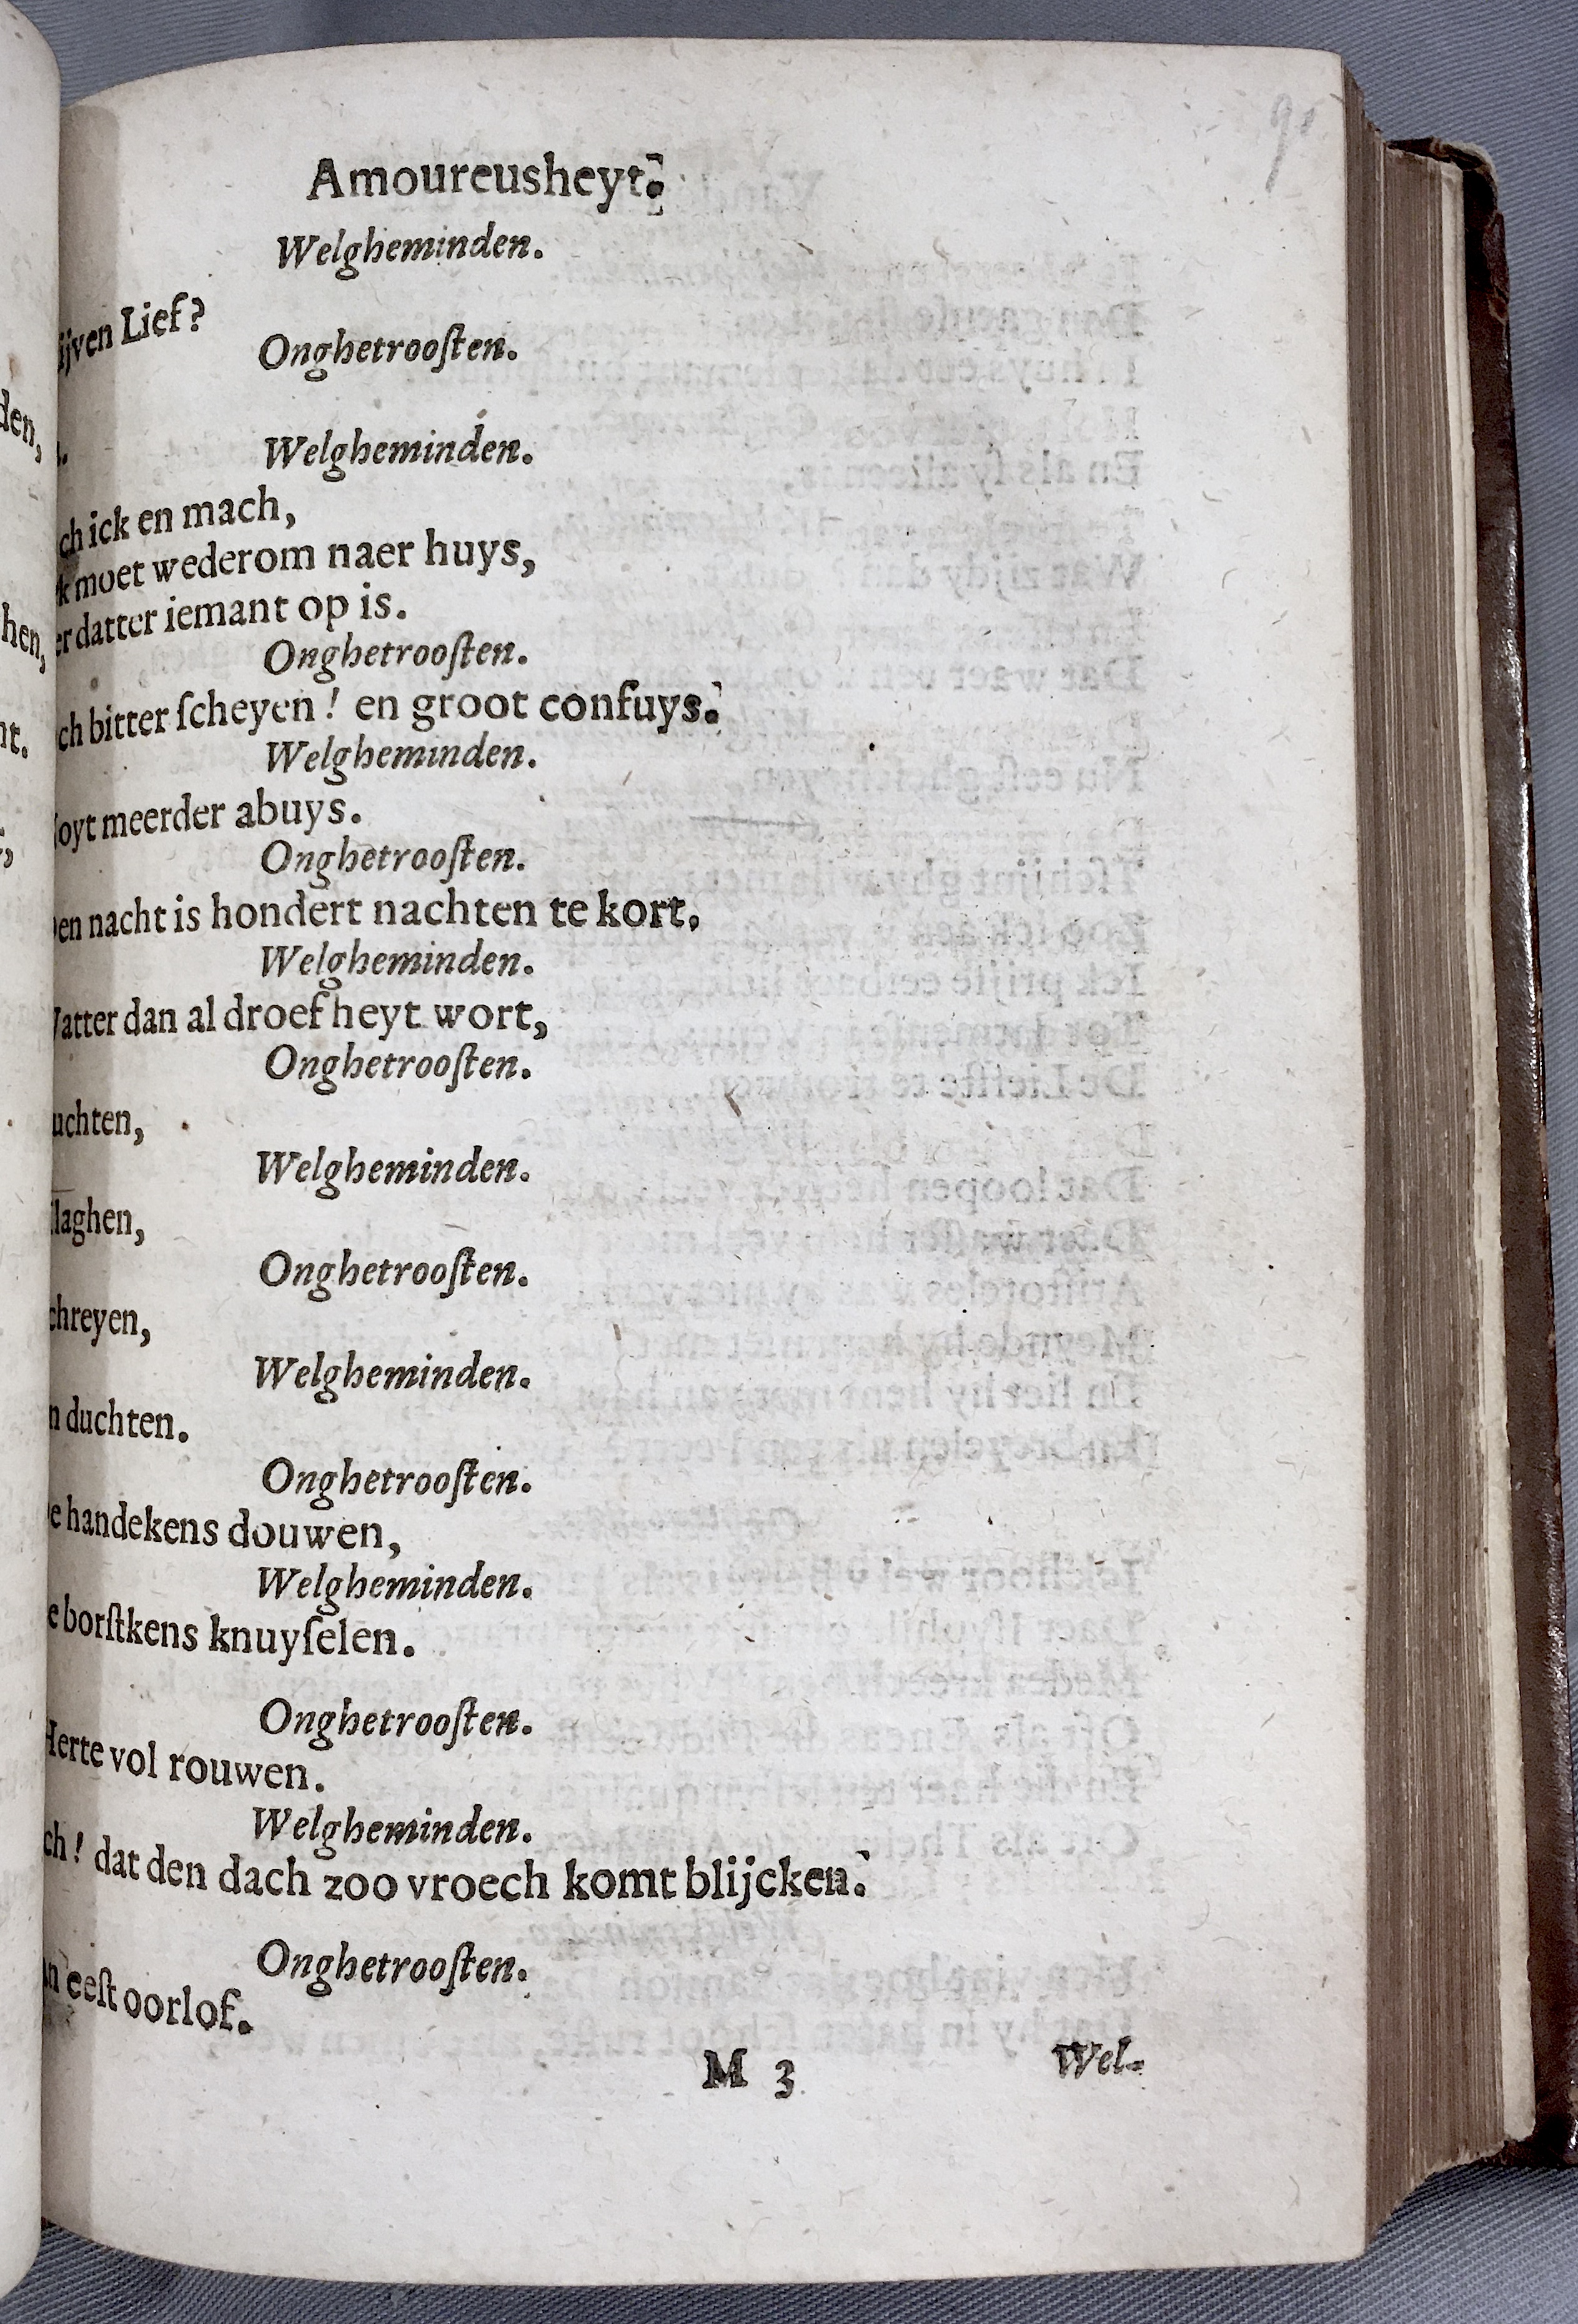 91
Amoureusheyt.
Welgheminden.
ijven Lief?
Onghetrooſten.
Welgheminden.
ch ick en mach,
k moet wederom naer huys,
er datter iemant op is.
Onghetrooſten.
ch bitter ſcheyen! en groot confuys.
Welgheminden.
oyt meerder abuys.
Onghetrooſten.
en nacht is hondert nachten te kort.
Welgheminden.
atter dan al droefheyt wort,
Onghetrooſten.
uchten,
Welgheminden.
laghen,
Onghetrooſten.
chreyen,
Welgheminden.
n duchten.
Onghetrooſten.
e handekens douwen,
Welgheminden.
e borſtkens knuyſelen.
Onghetrooſten.
Herte vol rouwen.
Welgheminden.
ch! dat den dach zoo vroech komt blijcken.
Onghetrooſten.
n eeſt oorlof.
M 3
Wel-
den,
hen,
nt.